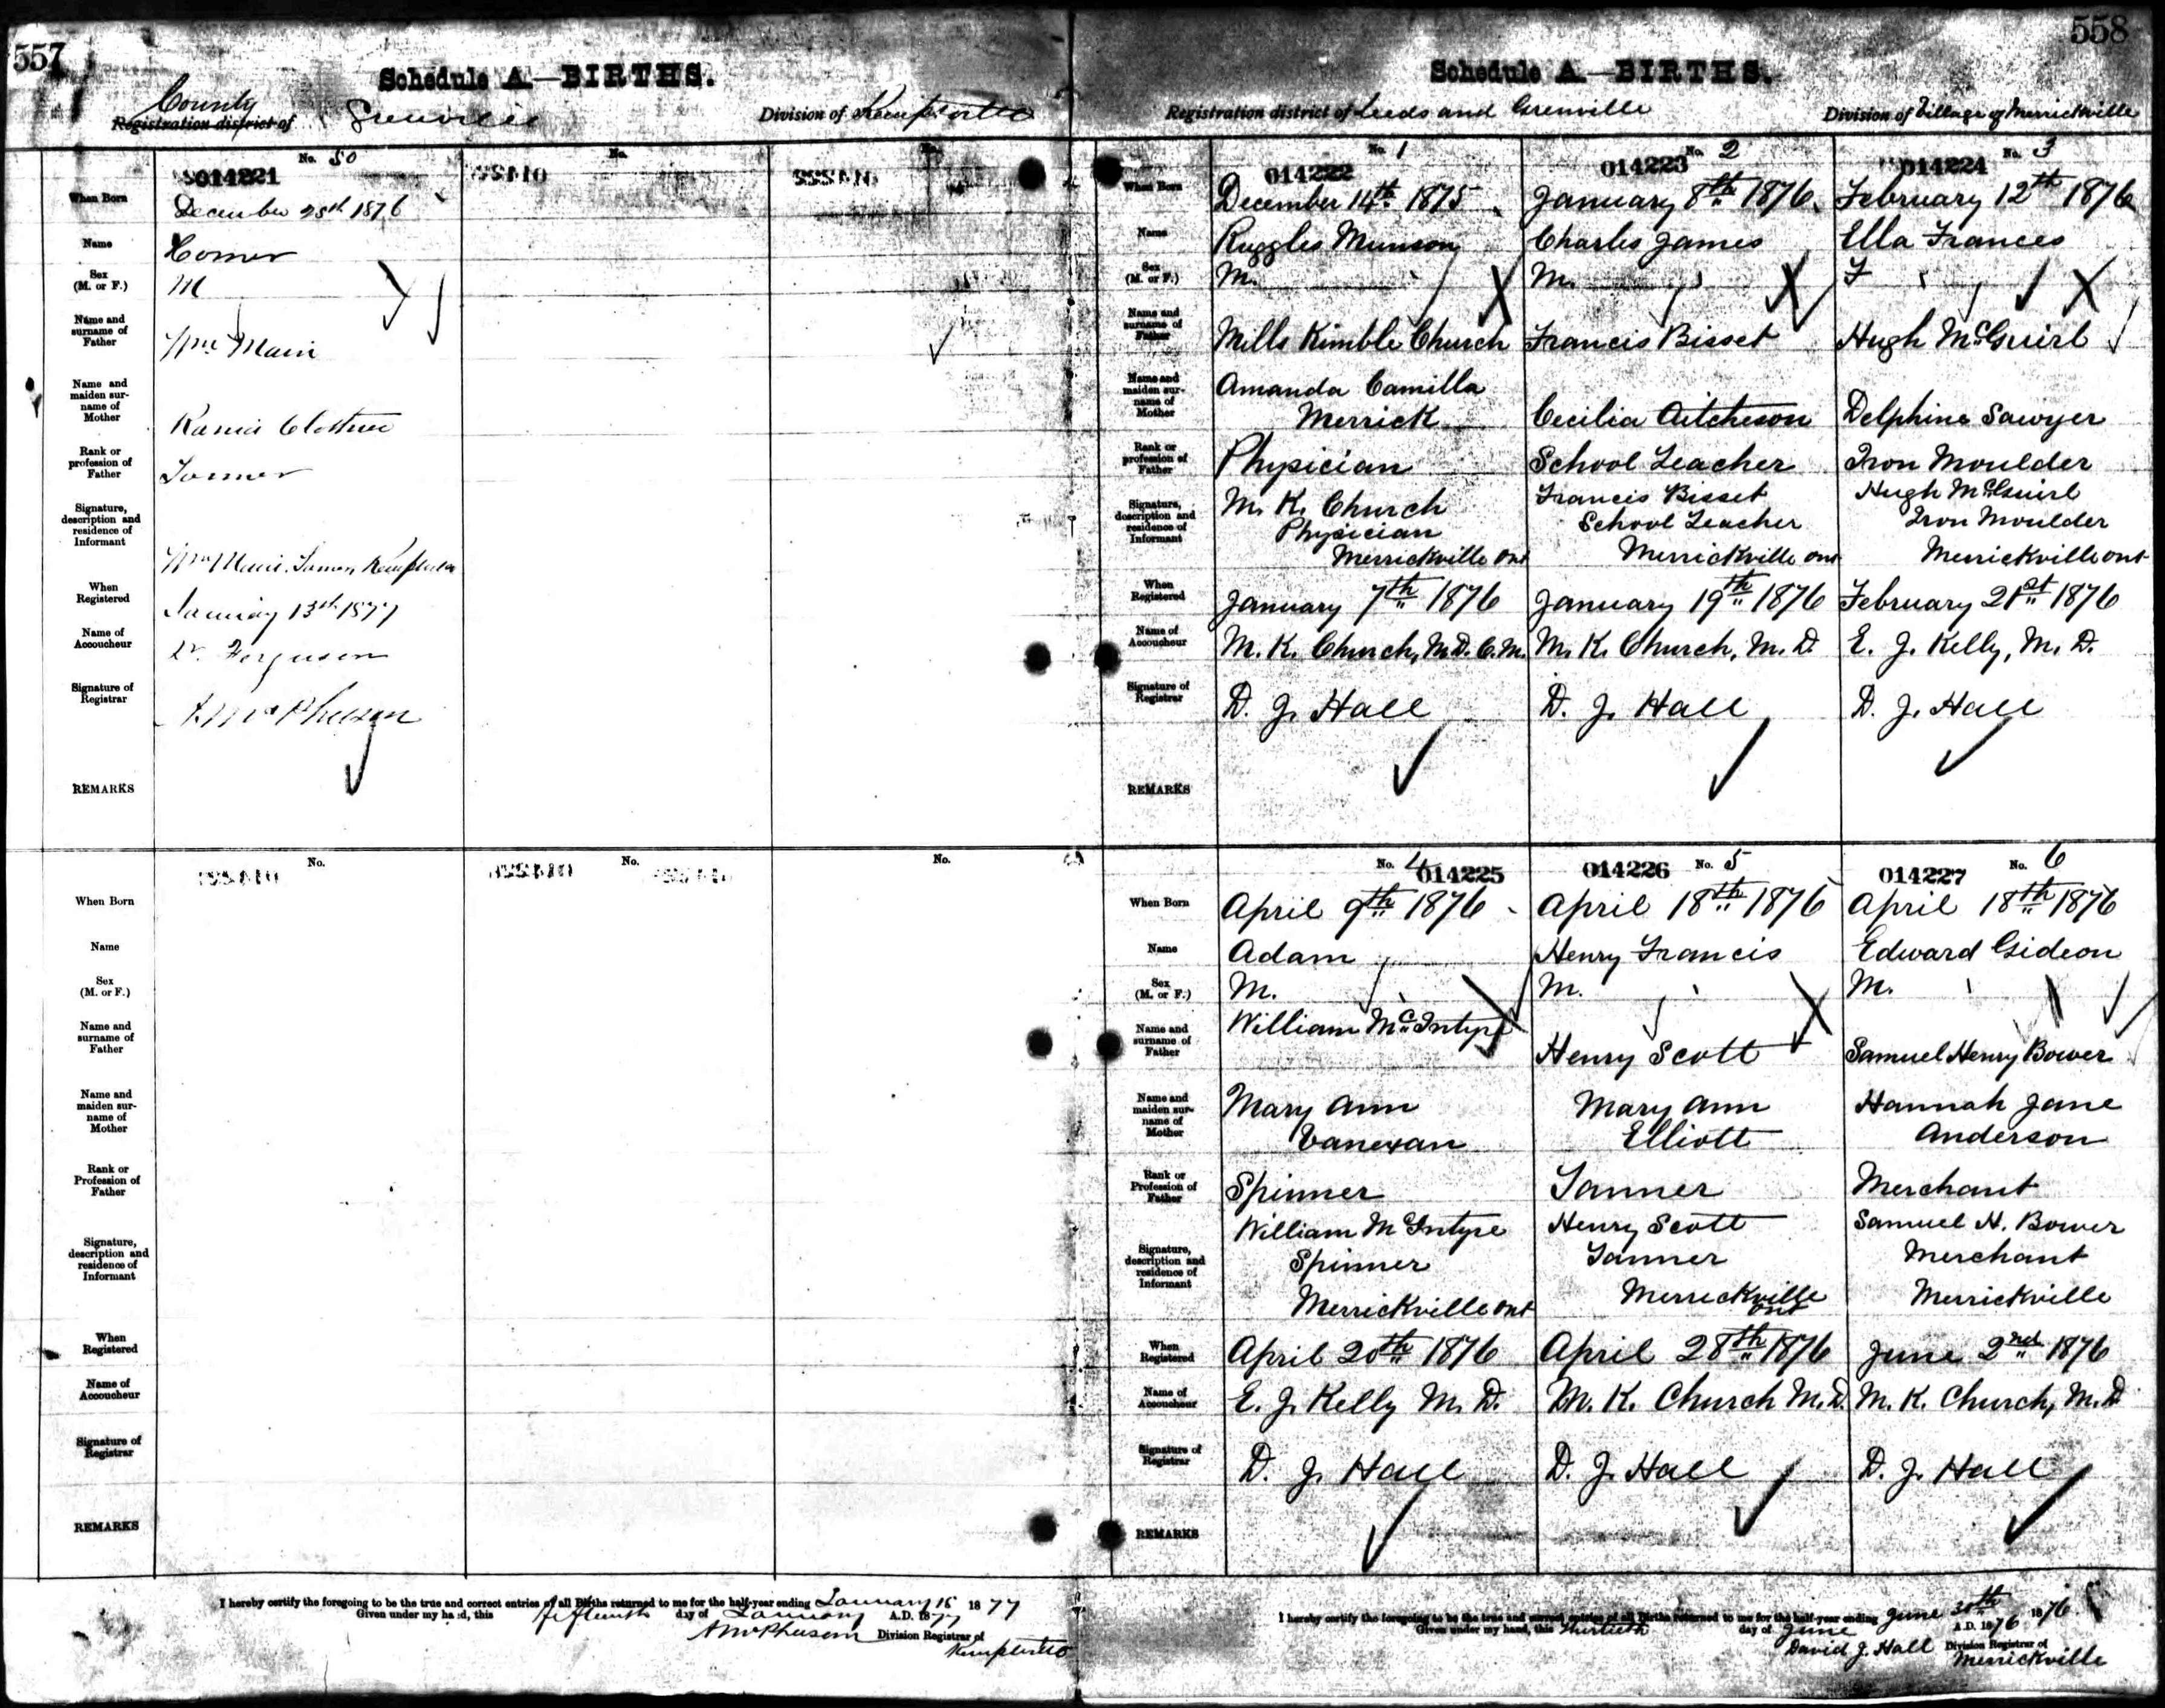 557
Schedule A.—BIRTHS.
County
Registration district of Grenville
Division of Kemptville
No. 50
014221
When Born
December 28th 1876
Name
Homer
Sex
(M. or F.)
M
Name and
surname of
Father
Wm Main
Name and
maiden sur-
name of
Mother
Rank or
profession of
Father
Farmer
Signature,
description and
residence of
Informant
Wm Main. Farmer Kemptville
When
Registered
January 13th 1877
Name of
Accoucheur
Dr. Ferguson
Signature of
Registrar
A McPherson
REMARKS
No.
No.
No.
No.
No.
When Born
Name
Sex
(M. or F.)
Name and
surname of
Father
Name and
maiden sur-
name of
Mother
Rank or
Profession of
Father
Signature,
description and
residence of
Informant
When
Registered
Name of
Accoucheur
Signature of
Registrar
REMARKS
I hereby certify the foregoing to be the true and correct entries of all Births returned to me for the half-year ending January 15 1877
Given under my hand, this fifteenth day of January A.D. 1877
A McPherson Division Registrar of
Kemptville
558
Schedule A.—BIRTHS.
Registration district of Leeds and Grenville
Division of Village of Merrickville
No. 1
014222
No. 2
014223
No. 3
014224
When Born
December 14th 1875
January 8th 1876
February 12th 1876
Name
Ruggles Munson
Charles James
Ella Frances
Sex
(M. or F.)
M.
M.
F
Name and
surname of
Father
Mills Kimble Church
Francis Bisset
Hugh McGuirl
Name and
maiden sur-
name of
Mother
Amanda Camilla
Merrick
Cecilia Aitcheson
Delphine Sawyer
Rank or
profession of
Father
Physician
School Teacher
Iron Moulder
Signature,
description and
residence of
Informant
M. K. Church
Physician
Merrickville Ont
Francis Bisset
School Teacher
Merrickville Ont
Hugh McGuirl
Iron Moulder
Merrickville Ont
When
Registered
January 7th 1876
January 19th 1876
February 21st 1876
Name of
Accoucheur
M. K. Church, M.D. C.M.
M. K. Church, M. D.
E. J. Kelly, M. D.
Signature of
Registrar
D. J. Hall
D. J. Hall
D. J. Hall
REMARKS
No. 4
014225
014226
No. 5
014227
No. 6
When Born
April 9th 1876
April 18th 1876
April 18th 1876
Name
Adam
Henry Francis
Edward Gideon
Sex
(M. or F.)
M.
M.
M.
Name and
surname of
Father
William McIntyre
Henry Scott
Samuel Henry Bower
Name and
maiden sur-
name of
Mother
Mary Ann
Mary Ann
Elliott
Hannah Jane
Anderson
Rank or
Profession of
Father
Spinner
Tanner
Merchant
Signature,
description and
residence of
Informant
William McIntyre
Spinner
Merrickville Ont
Henry Scott
Tanner
Merrickville
Ont
Samuel H. Bower
Merchant
Merrickville
When
Registered
April 20th 1876
April 28th 1876
June 2nd 1876
Name of
Accoucheur
E. J. Kelly M. D.
M. K. Church M.D.
M. K. Church, M.D
Signature of
Registrar
D. J. Hall
D. J. Hall
D. J. Hall
REMARKS
I hereby certify the foregoing to be the true and correct entries of all Births returned to me for the half-year ending June 30th 1876.
Given under my hand, this thirtieth day of June A.D. 1876
David J. Hall Division Registrar of
Merrickville